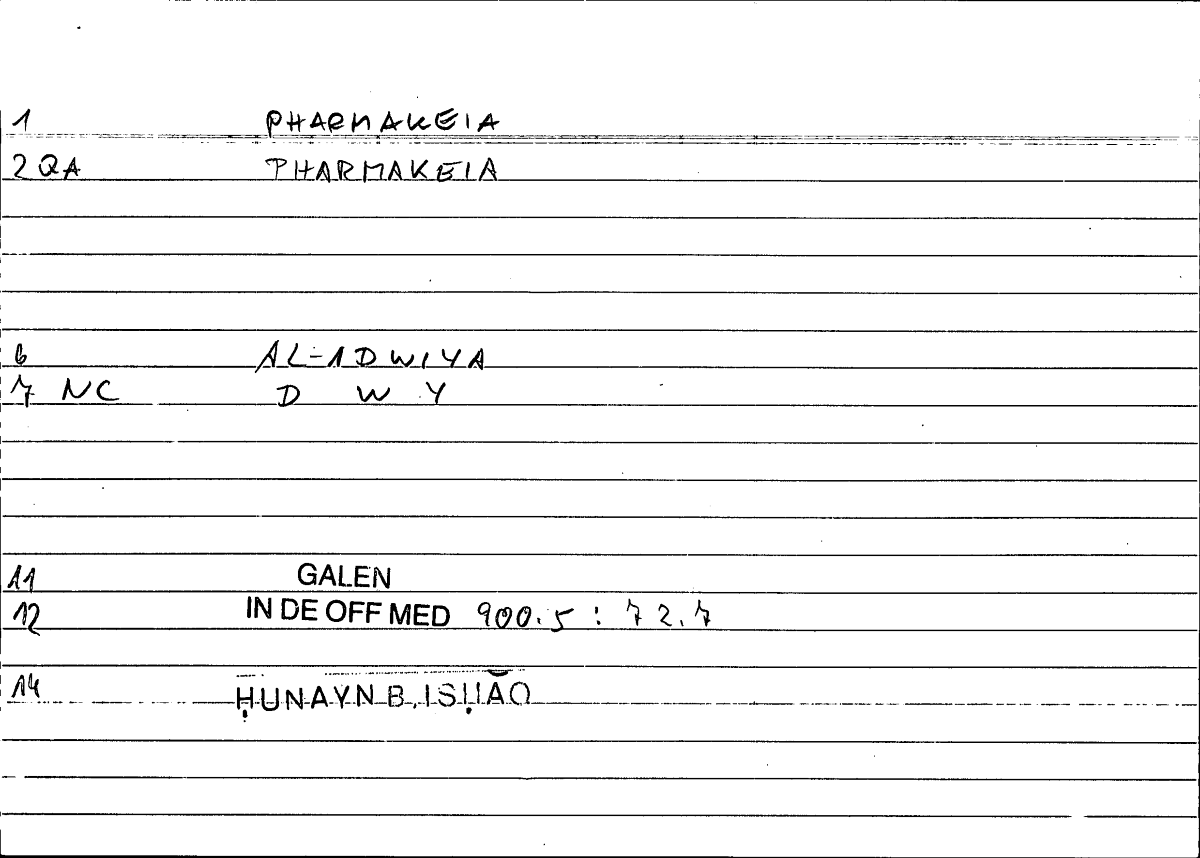 1 PHARMAKEIA
2 QA PHARMAKEIA
6 AL-ADWIYA
7 NC D W Y
11 GALEN
12 IN DE OFF MED 900.5 : 72.7
14 ḤUNAYN B. ISḤĀQ